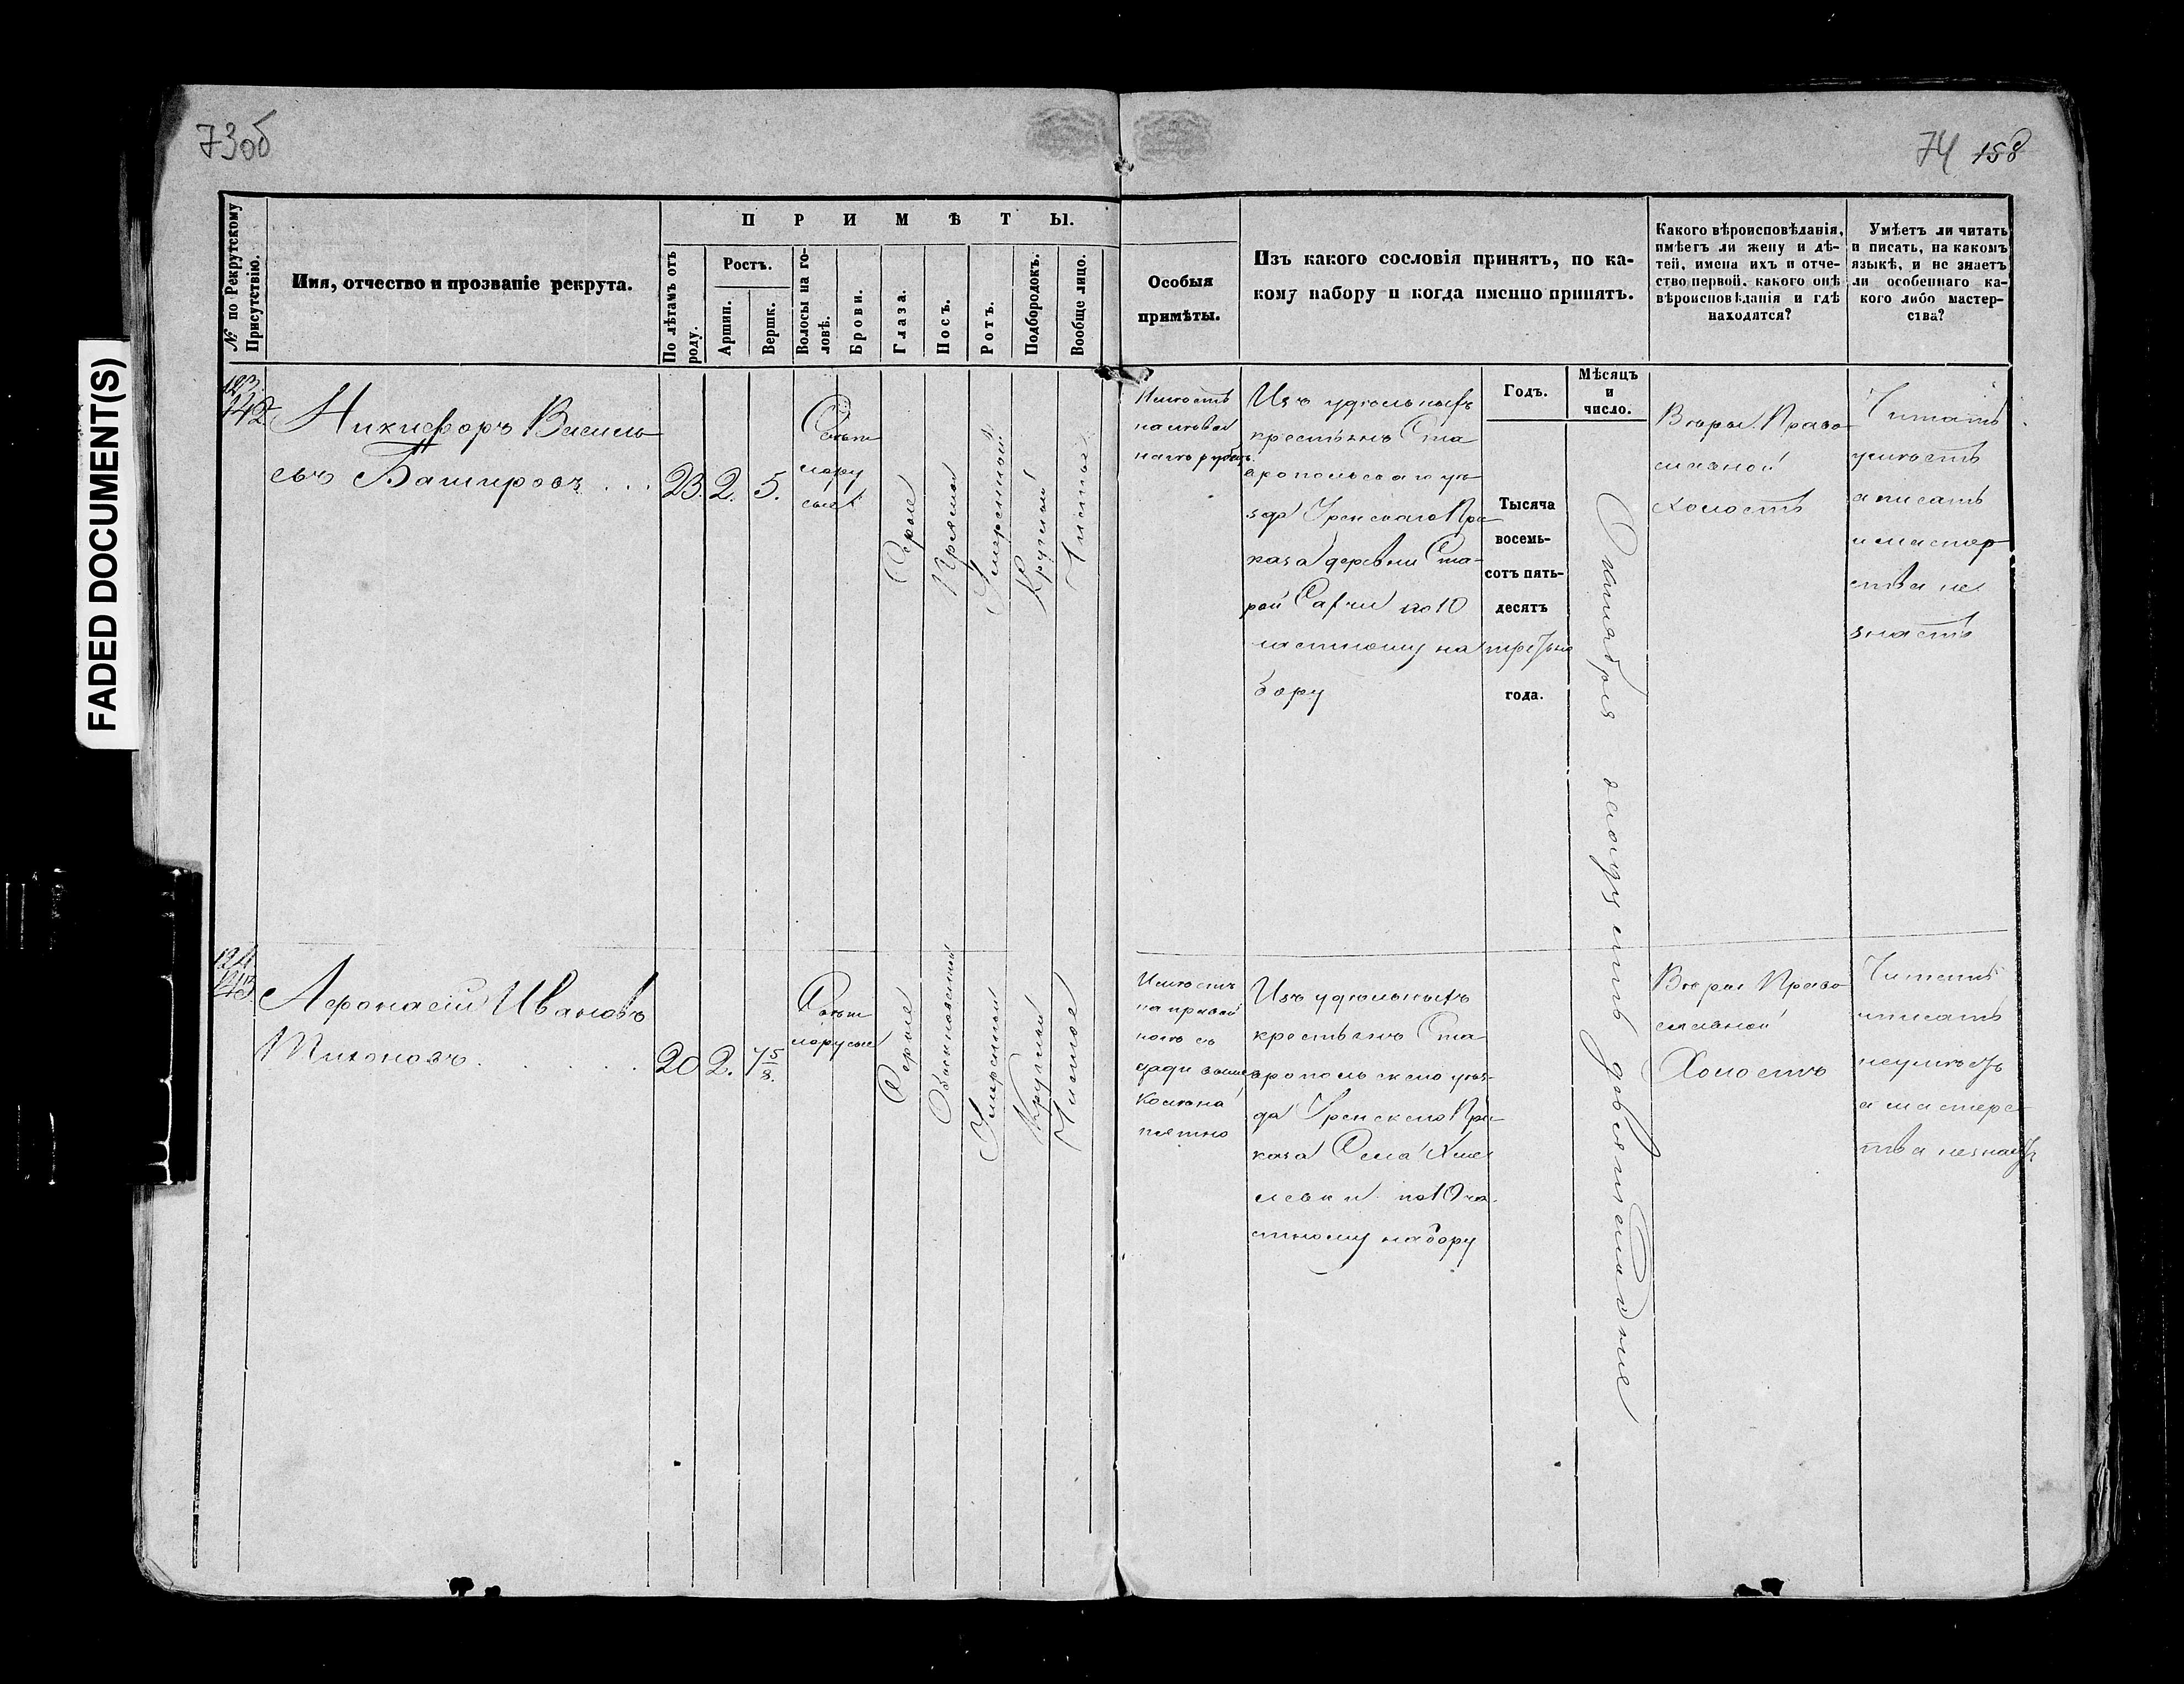 73об
74 158
FADED DOCUMENT(S)
№ по Рекрутскому
Присутствію.
Имя, отчество и прозваніе рекрута.
ПРИМѢТЫ.
По лѣтамъ отъ
роду.
Ростъ.
Аршин.
Вершк.
Волосы на го-
ловѣ.
Брови.
Глаза.
Носъ.
Ротъ.
Подбородокъ.
Вообще лицо.
Особыя
примѣты.
Изъ какого сословія принятъ, по ка-
кому набору и когда именно принятъ.
Какого вѣроисповѣданія,
имѣетъ ли жену и дѣ-
тей, имена ихъ и отче-
ство первой, какого онѣ
вѣроисповѣданія и гдѣ
находятся?
Умѣетъ ли читать
и писать, на какомъ
языкѣ, и не знаетъ
ли особеннаго ка-
кого либо мастер-
ства?
Годъ.
Мѣсяцъ
и
число.
123
142
Никифоръ Василь
евъ Башировъ . . .
23. 2. 5.
Свѣт
лору
сые
Серые
Прямой
Умеренный
Круглый
Чистое
Имѣетъ
на левой
ногѣ рубецъ.
Изъ удѣльныхъ
крестьянъ Ста
вропольскаго уѣ
зда Уренскаго При
каза деревни Ста-
рой Сахчи по 10
частному на
бору
Тысяча
восемь-
сотъ пять-
десятъ
третьяго
года.
Октября двадцать девятого дня
Вѣры Право
славной
Холостъ
Читать
умѣетъ
а писать
и мастер
ства не
знаетъ
124
143
Афонасій Ивановъ
Тихоновъ . . . . .
20 2. 4 5/8.
Свѣт
лорусые
Серые
Обыкновенной
Умеренный
Круглый
Чистое
Имѣетъ
на правой
ногѣ с
зади выше
колѣна
пятно
Изъ удѣльныхъ
крестьянъ Ста
вропольскаго уѣз-
да Уренскаго При-
каза Села Хме
левки по 10 ча
стному набору
Вѣры Право
славной
Холостъ
Читать
и писать
неумѣетъ
а мастерс
тва незнаетъ